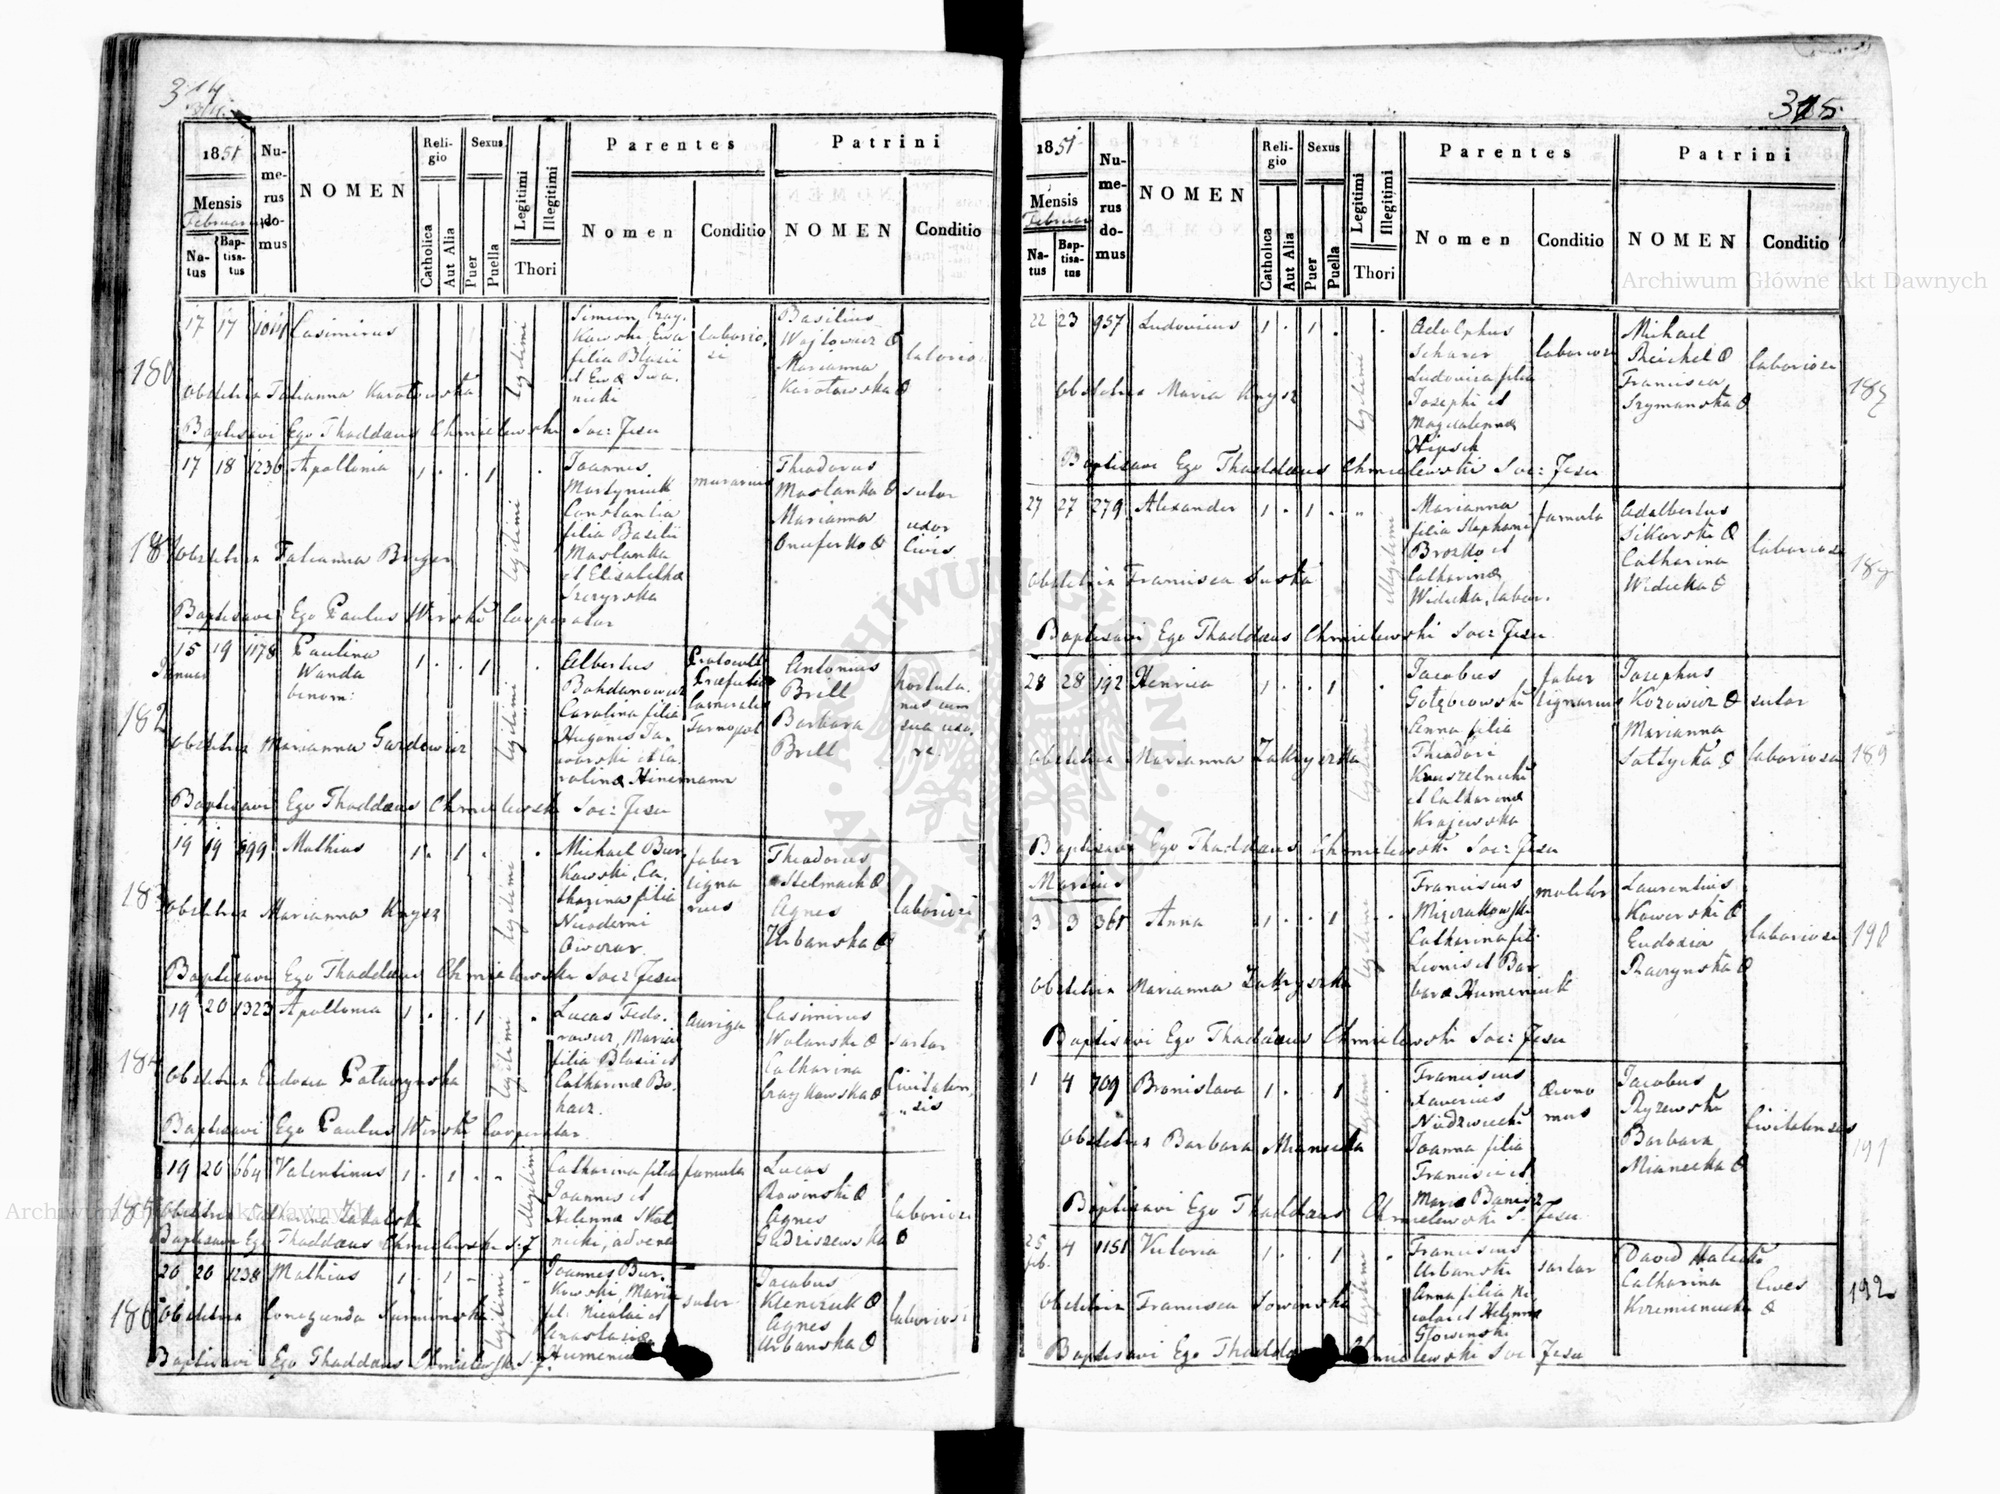 314
1851
Nu-
me-
rus
do-
mus
NOMEN
Reli-
gio
Sexus
Legitimi
Illegitimi
Thori
Parentes
Patrini
Mensis
Februar
Na-
tus
Bap-
tisa-
tus
Catholica
Aut Alia
Puer
Puella
Nomen
Conditio
NOMEN
Conditio
180
17 17 1014 Casimirus
legitimi
Simeon Czay-
kowski, Ewa
filia Blasii
et Ewæ Iwa-
nicki
laborio-
si
Basilius
Wojtowicz
Marianna
Karotowska
laborio
Obstetrix Tatianna Karatowska
Baptisavi Ego Thaddæus Chmielewski Soc: Jesu
181
17 18 1236 Apollonia 1 . . 1 .
legitimi
Joannes
Martyniuk
Constantia
filia Basilii
Maslanka
et Elisabethæ
murarius
Theodorus
Maslanka
Marianna
Onuferko
sutor
uxor
Civis
Obstetrix Tatianna Breyer
Baptisavi Ego Paulus Wirski Cooperator
182
15 19 1178 Paulina
Januar
Wanda
binom:
1 . . 1 .
legitimi
Albertus
Bohdanowicz
Carolina filia
Hugonis Ja-
worski et Ca-
rolinæ Hinemann
Præfectur
Cameralis
Tarnopol
Antonius
Brill
Barbara
Brill
hortula-
nus cum
sua uxo-
re
Obstetrix Marianna Gardewicz
Baptisavi Ego Thaddæus Chmielewski Soc: Jesu
183
19 19 699 Mathias 1 . 1 . .
legitimi
Michael Bur-
kowski, Ca-
tharina filia
Owczar
faber
ligna
rius
Theodorus
Stelmach
Agnes
Urbanska
laboriosi
Obstetrix Marianna Knysz
Baptisavi Ego Thaddæus Chmielewski Soc: Jesu
184
19 20 1323 Apollonia 1 . . 1 .
legitimi
Lucas Fedo-
rowicz, Maria
filia Blasii et
Catharinæ Bo-
hacz.
auriga
Casimirus
Wolanski
Catharina
Czaykowska
sartor
Civitaten-
sis
Obstetrix Eudoxia Pataczynska
Baptisavi Ego Paulus Wirski Cooperator
185
19 20 664 Valentinus 1 . 1 . .
illegitimi
Catharina filia
Joannis et
Helennæ Skol-
nicki, advena
famula
Lucas
Rowinski
Agnes
Gudziszewska
laboriosi
Obstetrix Catharina Zakalska
Baptisavi Ego Thaddæus Chmielewski S: J
186
20 20 1238 Mathias 1 . 1 . .
legitimi
Joannes Bur-
kowski, Maria
fil: Nicolai et
Anastasiæ
Humeniuk
sutor
Jacobus
Klenczuk
Agnes
Urbanska
laboriosi
Obstetrix Conegunda Suminska
Baptisavi Ego Thaddæus Chmielewski S. J.
315
1851
Nu-
me-
rus
do-
mus
NOMEN
Reli-
gio
Sexus
Legitimi
Illegitimi
Thori
Parentes
Patrini
Mensis
Februar
Na-
tus
Bap-
tisa-
tus
Catholica
Aut Alia
Puer
Puella
Nomen
Conditio
NOMEN
Conditio
22 23 957 Ludovicus 1 . 1 . .
legitimi
Adolphus
Scharer
Ludovica filia
Josephi et
Magdalenæ
Hipsch
laboriosi
Michael
Reichel
Francisca
Szymanska
laboriosi
187
Obstetrix Maria Knysz
Baptisavi Ego Thaddæus Chmielewski Soc: Jesu
27 27 279 Alexander 1 . 1 . "
illegitimi
Marianna
filia Stephani
Brozko et
Catharinæ
Widecka, labor.
famula
Adalbertus
Sikorski
Catharina
Widecka
laboriosi
188
Obstetrix Francisca Suska
Baptisavi Ego Thaddæus Chmielewski Soc: Jesu
28 28 192 Henrica 1 . . 1 .
legitimi
Jacobus
Gołębiowski
Anna filia
Theodori
Kruszelnicki
et Catharinæ
Krajewska
faber
lignarius
Josephus
Kozowicz
Marianna
Sołtycka
sutor
laboriosa
189
Obstetrix Marianna Zakryszka
Baptisavi Ego Thaddæus Chmielewski Soc: Jesu
Martius
3 3 361 Anna 1 . . 1 .
legitimi
Franciscus
Mizerakowski
Catharina fil:
Leonis et Bar
baræ Humeniuk
molitor
Laurentius
Kowerski
Eudoxia
Raczynska
laboriosi
190
Obstetrix Marianna Zakryszka
Baptisavi Ego Thaddæus Chmielewski Soc: Jesu
1 4 709 Bronislava 1 . . 1 .
legitimi
Franciscus
Xaverius
Niedzwiecki
Joanna filia
Francisci et
Mariæ Baniesz
Œcono
mus
Jacobus
Ryzewski
Barbara
Mianecka
Civitatensis
191
Obstetrix Barbara Mianecka
Baptisavi Ego Thaddæus Chmielewski S. Jesu
25 feb. 4 1151 Victoria 1 . . 1 .
legitimi
Franciscus
Urbanski
Anna filia Ni
colai et Helennæ
Głowinski
sartor
David Halecki
Catharina
Krzemieniecka
Cives
192
Obstetrix Francisca Sowinska
Baptisavi Ego Thaddæus Chmielewski Soc Jesu
Archiwum Główne Akt Dawnych
Archiwum Główne Akt Dawnych
ARCHIWUM GŁÓWNE AKT DAWNYCH